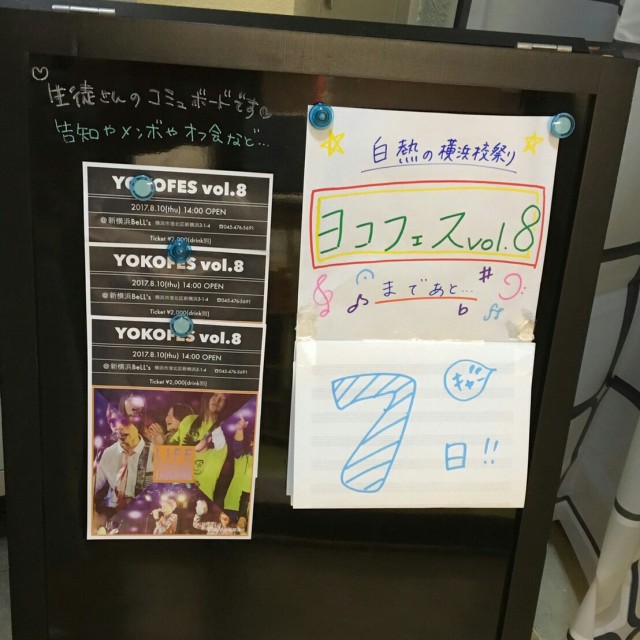 生徒さんのコミュボードです
告知やメンボやオフ会など…
YOKOFES vol.8
2017.8.10(thu) 14:00 OPEN
@新横浜BeLL's 横浜市港北区新横浜2-1-4 ☎045-476-5691
Ticket ¥2,000(drink別)
YOKOFES vol.8
2017.8.10(thu) 14:00 OPEN
@新横浜BeLL's 横浜市港北区新横浜2-1-4 ☎045-476-5691
Ticket ¥2,000(drink別)
YOKOFES vol.8
2017.8.10(thu) 14:00 OPEN
@新横浜BeLL's 横浜市港北区新横浜2-1-4 ☎045-476-5691
Ticket ¥2,000(drink別)
白熱の横浜校祭り
ヨコフェスvol.8
まであと…
7日!!
ギャン